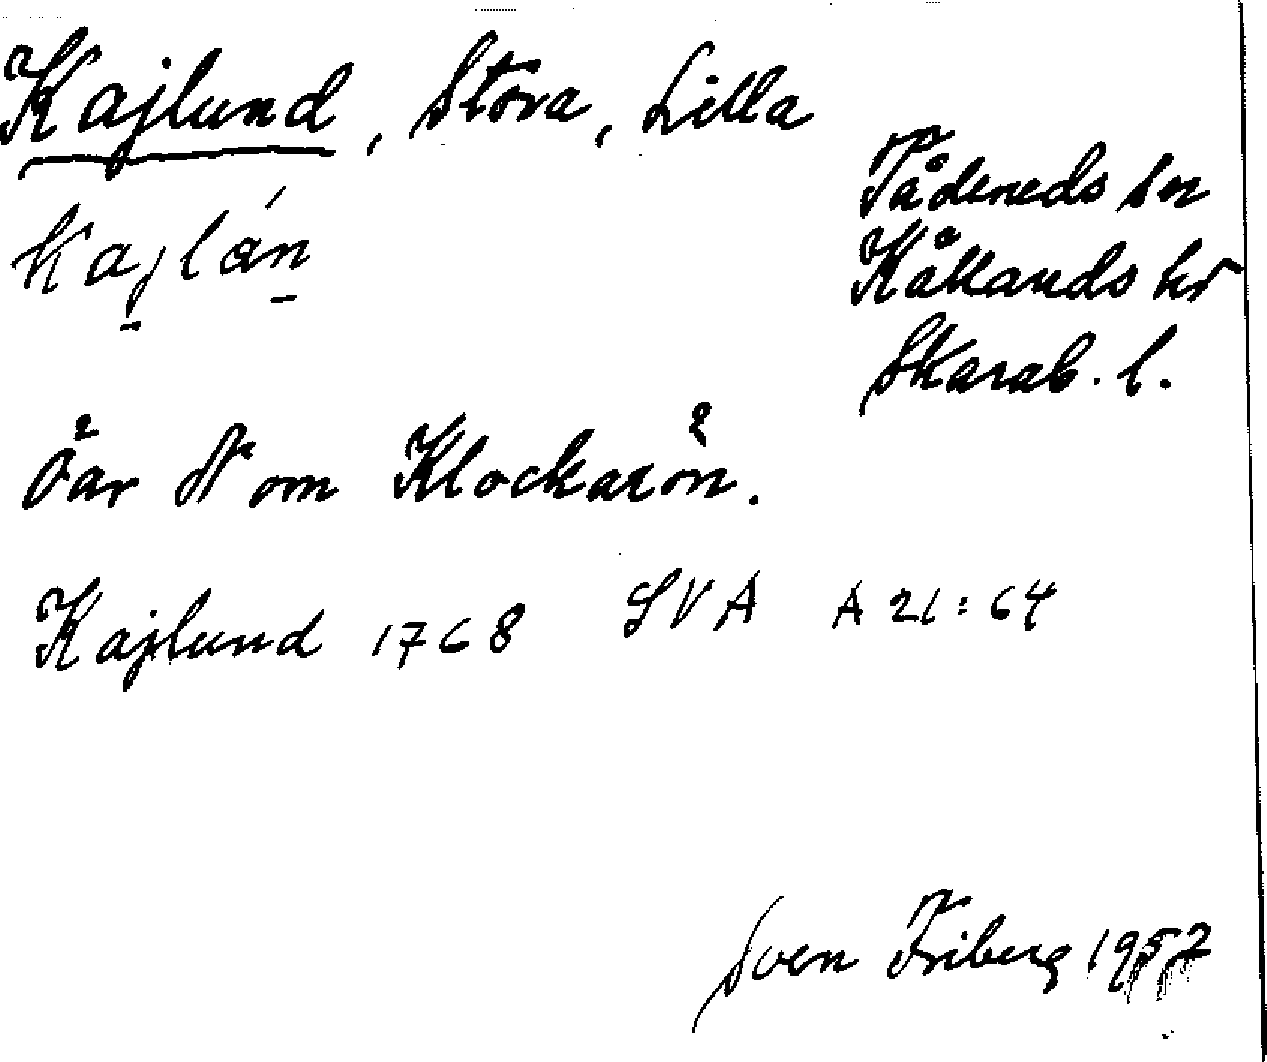 Kajlund, Stora, Lilla
Tådeneds sn
Kållands hd
Skarab. l.
kajlán
Öar N om Klockarön.
Kajlund 1768 LVA A 21:64
Sven Friberg 1957